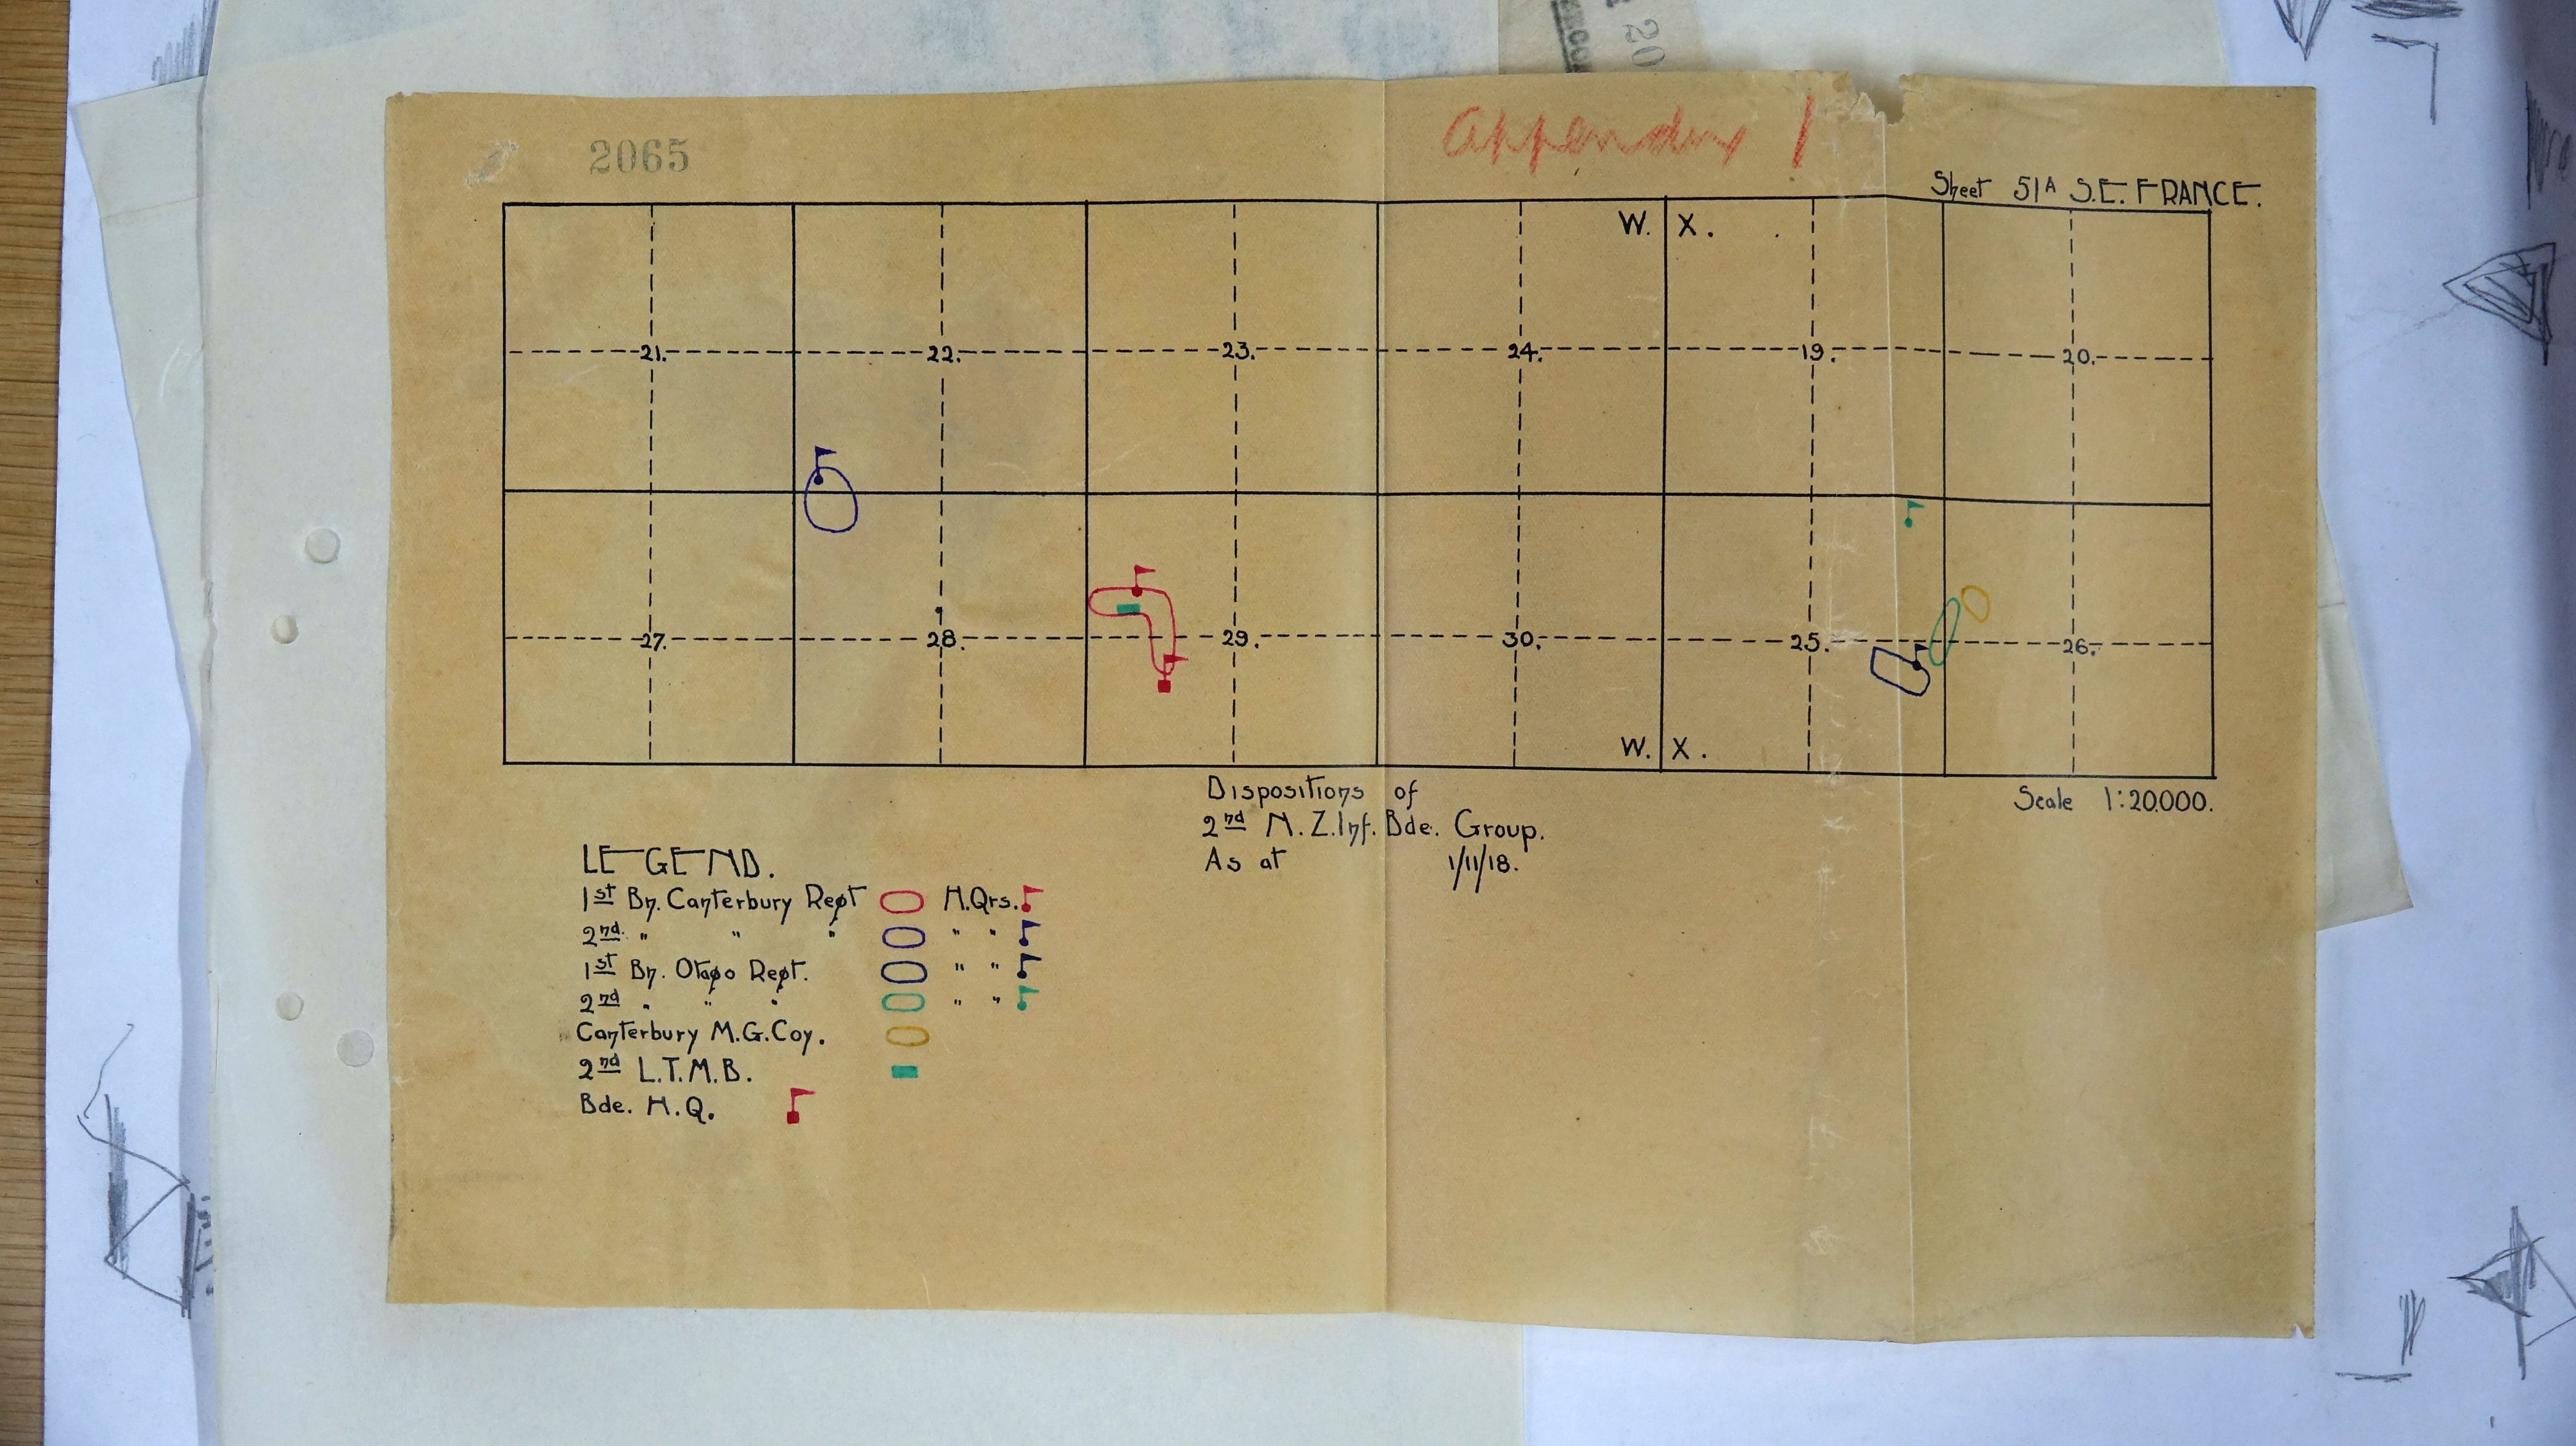 20
2065
Appendix 1
Sheet 51A S.E. FRANCE.
W. X.
21. 22. 23. 24. 19. 20.
27. 28. 29. 30. 25. 26.
W. X.
Scale 1:20.000.
Dispositions of
2nd N.Z. Inf. Bde. Group.
As at 1/11/18.
LEGEND.
1st Bn. Canterbury Regt H.Qrs.
2nd " " " " "
1st Bn. Otago Regt. " "
2nd " " " " "
Canterbury M.G. Coy.
2nd L.T.M.B.
Bde. H.Q.